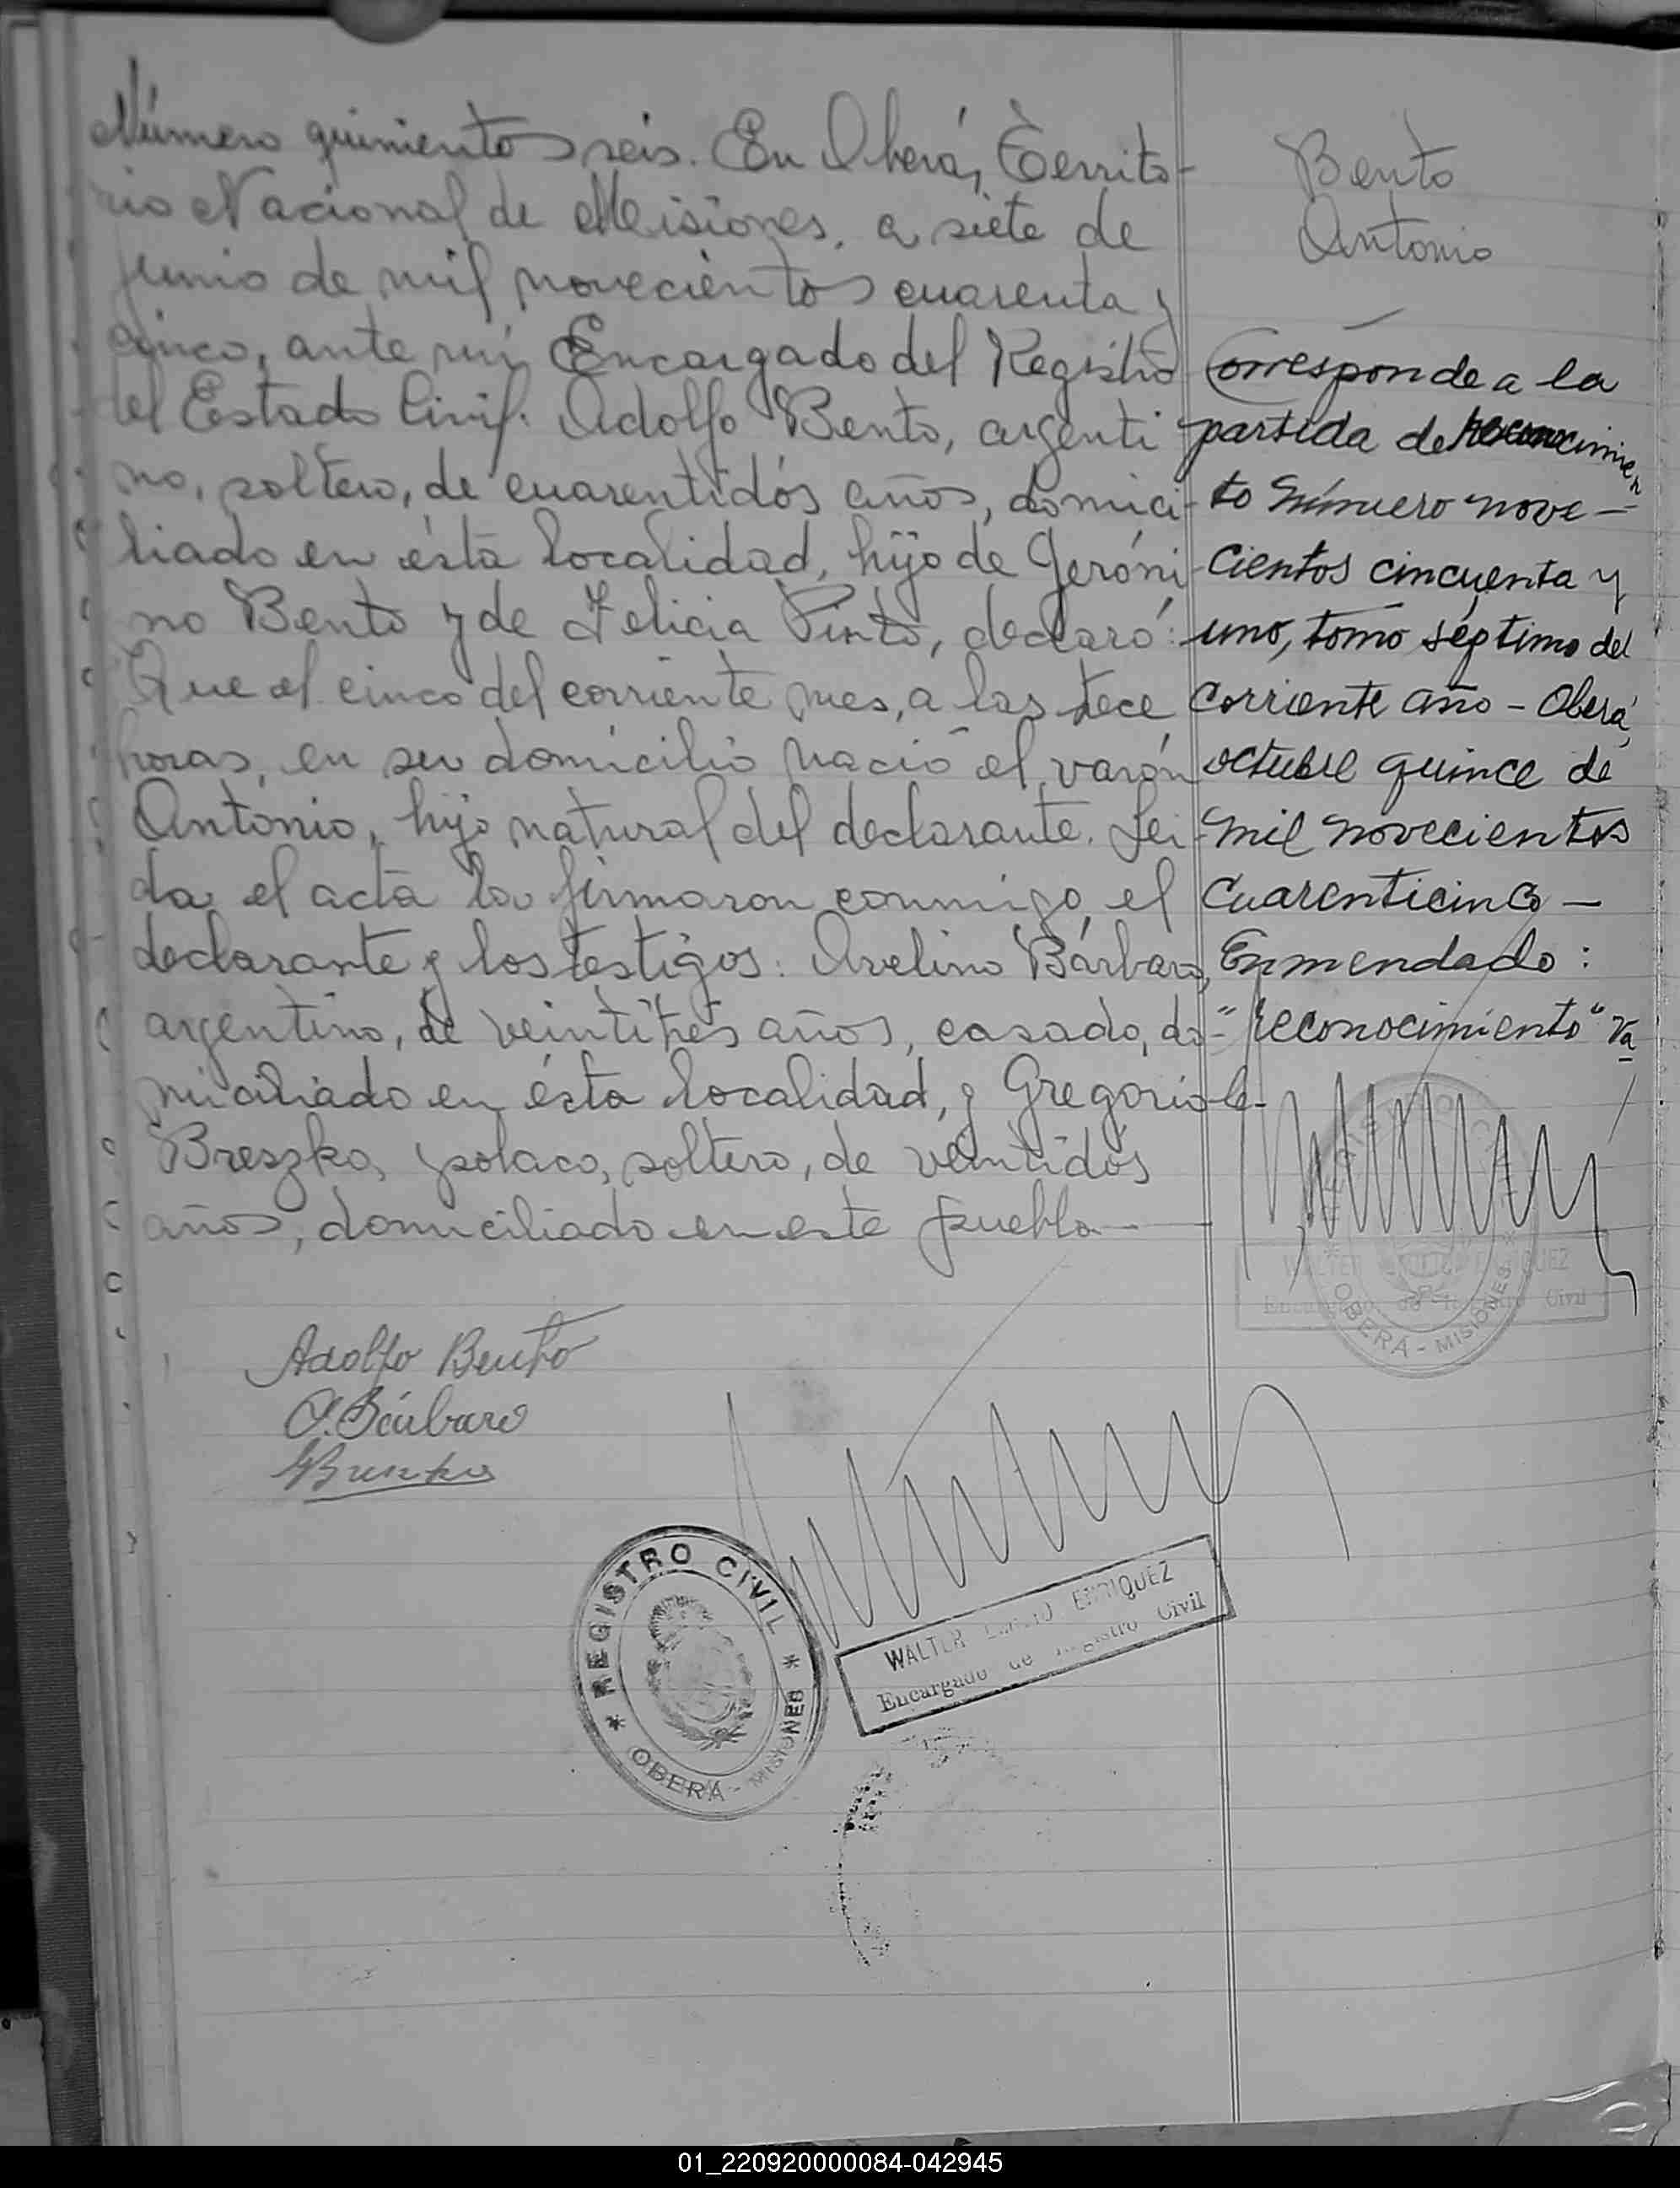 Número quinientos seis. En Oberá, Territo-
rio Nacional de Misiones, a siete de
junio de mil novecientos cuarenta y
cinco, ante mí Encargado del Registro
del Estado Civil: Adolfo Bento, argenti
no, soltero, de cuarentidós años, domici-
liado en ésta localidad, hijo de Jeróni
no Bento y de Felicia Pinto, declaró:
Que el cinco del corriente mes, a las trece
horas, en su domicilio nació el varón
Antonio, hijo natural del declarante. Lei-
da el acta la firmaron conmigo, el
declarante y los testigos: Avelino Bárbaro,
argentino, de veintitrés años, casado, do-
miciliado en ésta localidad, y Gregorio
Breszko, polaco, soltero, de veintidós
años, domiciliado en este pueblo
Bento
Antonio
Corresponde a la
partida de reconocimien
to Número nove-
cientos cincuenta y
uno, tomo séptimo del
corriente año - Oberá,
octubre quince de
mil novecientos
cuarenticinco -
Enmendado:
"reconocimiento" Va
le-
REGISTRO CIVIL
OBERÁ - MISIONES
WALTER ENRIQUEZ
Encargado de Registro Civil
Adolfo Bento
A. Bárbaro
GBreszko
* REGISTRO CIVIL *
OBERÁ - MISIONES
WALTER ENRIQUEZ
Encargado de Registro Civil
01_220920000084-042945